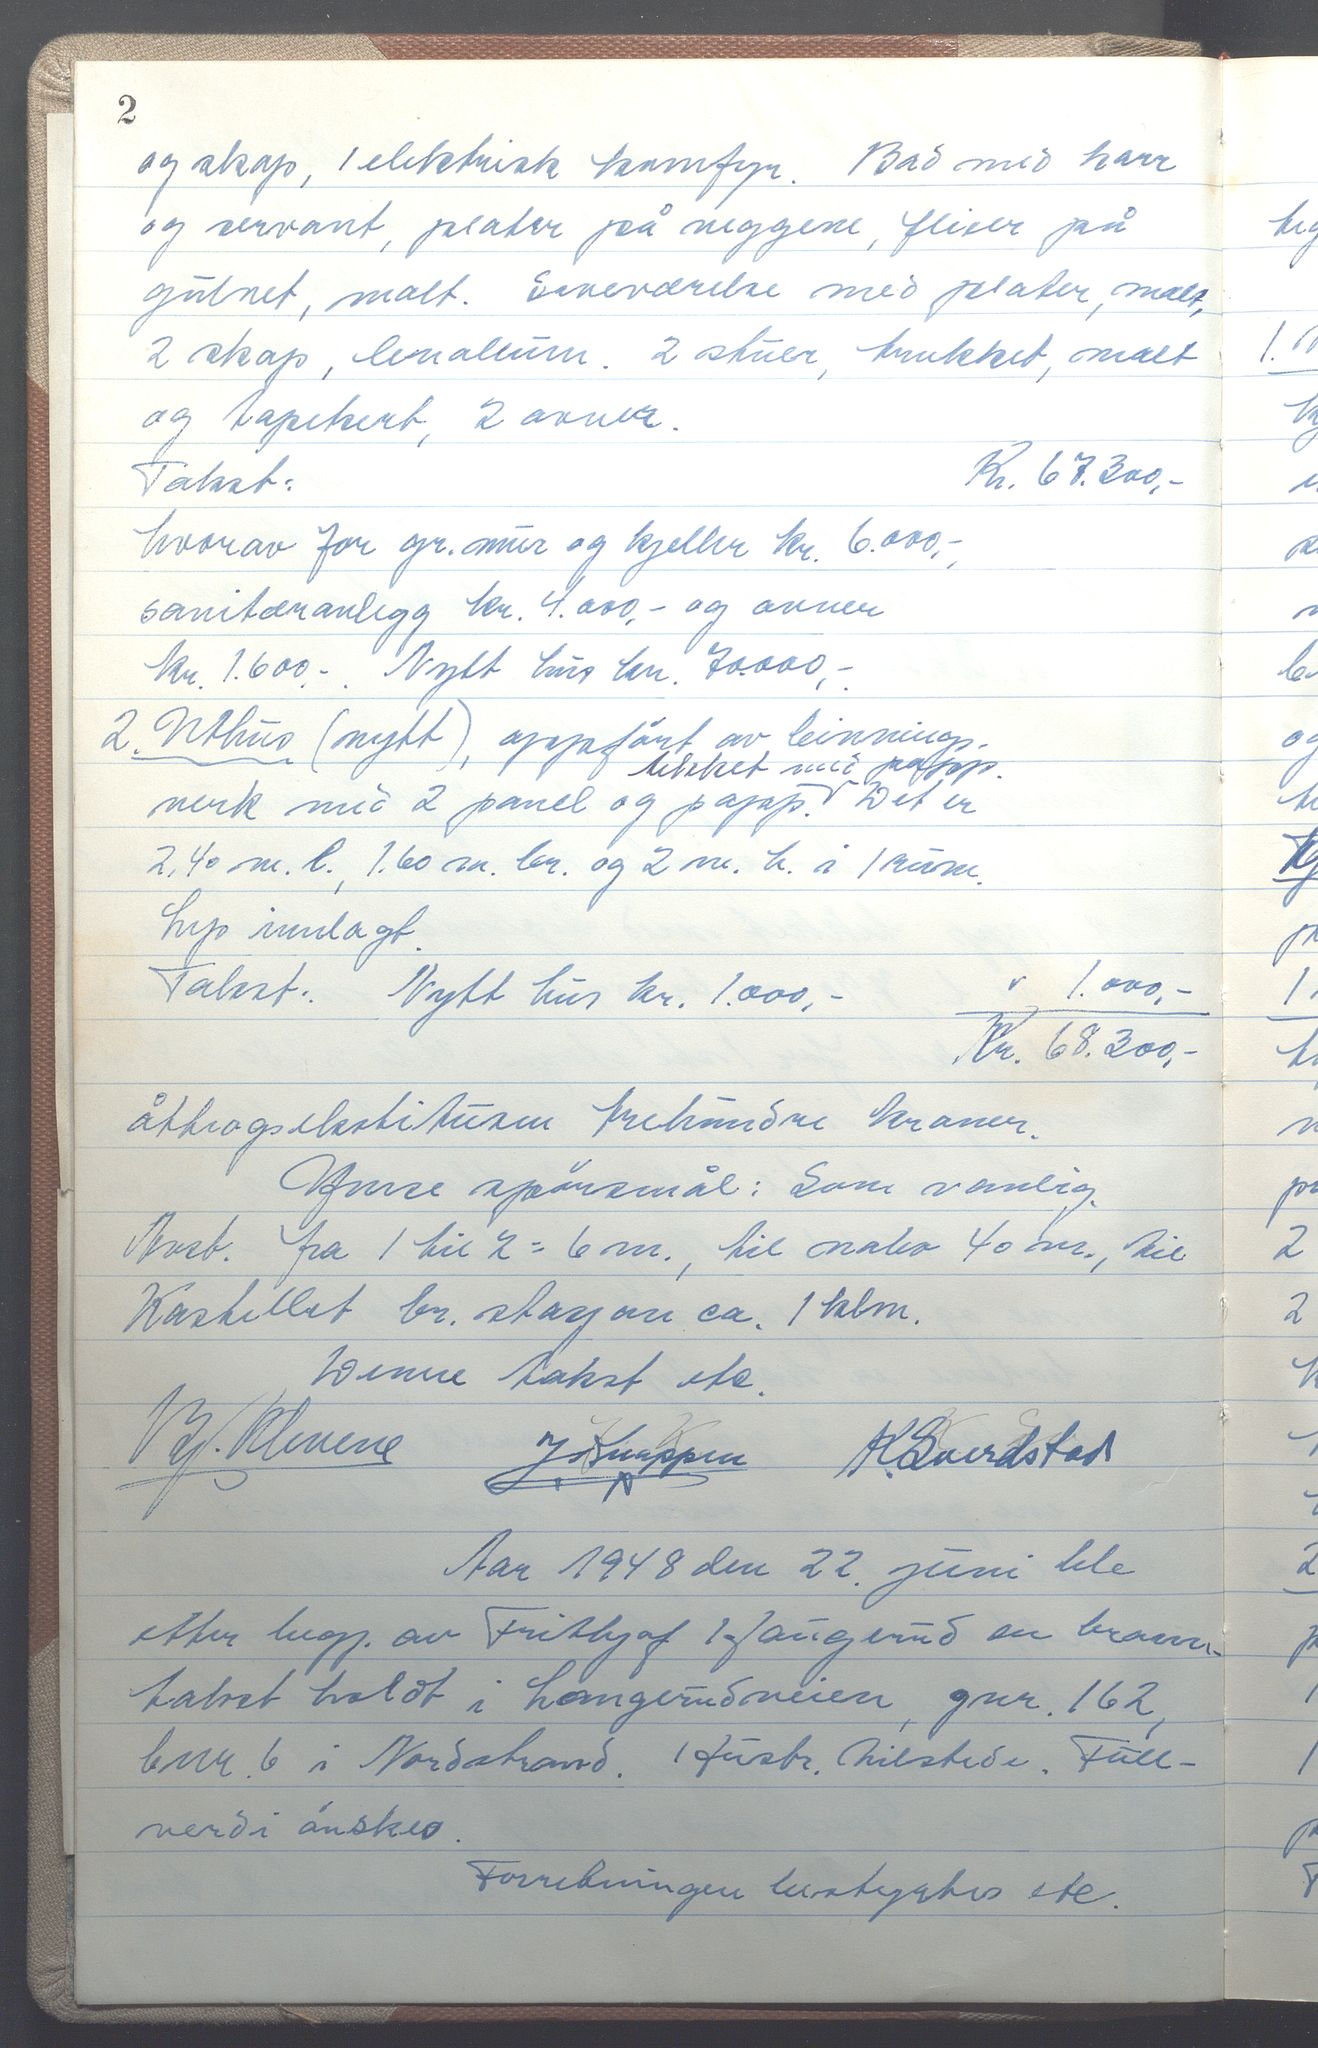 2
og skap, 1 elektrisk komfyr. Bad med karr
og servant, plater på veggene, fliser på
gulvet, malt. Soveværelse med plater, malt,
2 skap, linolium. 2 stuer, trukket, malt
og tapetsert, 2 ovner.
Takst: Kr. 67.300,-
hvorav for gr.mur og kjeller kr. 6.000,-,
sanitæranlegg kr. 4.000,- og ovner
kr. 1.600,-. Nytt hus kr. 70.000,-.
2. Uthus (nytt), oppført av binnings-
tekket med papp.
verk med 2 panel og papp. Det er
2,40 m. l., 1.60 m. br. og 2 m. h. i 1 rum.
Lys innlagt.
Takst: Nytt hus kr. 1.000,- " 1.000,-
Kr. 68.300,-
åttogsekstitusen trehundre kroner.
Øvrse spörsmål: Som vanlig.
Avst. fra 1 til 2 = 6 m., til nabo 40 m., til
Kastellet br. stasjon ca. 1 klm.
Denne takst etc.
Bj. Klevene J. Knappen K. Sverdstad
Aar 1948 den 22. juni ble
etter begj. av Frithjof Haugerud en brann-
takst holdt i Langerudveien, gnr. 162,
bnr. 6 i Nordstrand. Hustr. tilstede. Full-
verdi önskes.
Forretningen bestyrtes etc.